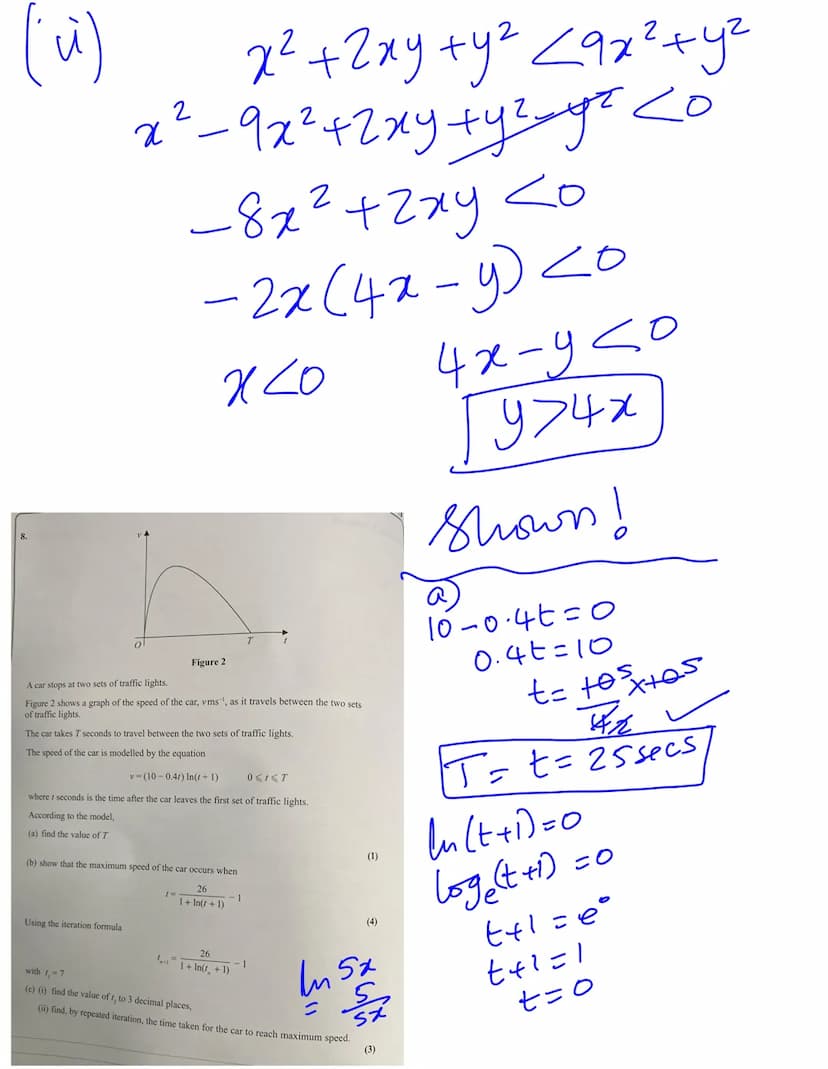 (ii)
x² + 2xy + y² < 9x² + y²
x² – 9x² + 2xy + y² – y² < 0
–8x² + 2xy < 0
–2x(4x – y) < 0
x < 0 4x – y < 0
y > 4x
Shown!
8.
v
O
T
t
Figure 2
A car stops at two sets of traffic lights.
Figure 2 shows a graph of the speed of the car, v ms⁻¹, as it travels between the two sets
of traffic lights.
The car takes T seconds to travel between the two sets of traffic lights.
The speed of the car is modelled by the equation
v = (10 – 0.4t) ln(t + 1) 0 ⩽ t ⩽ T
where t seconds is the time after the car leaves the first set of traffic lights.
According to the model,
(a) find the value of T
(1)
(b) show that the maximum speed of the car occurs when
t = 26 / (1 + ln(t + 1)) – 1
(4)
Using the iteration formula
tₙ₊₁ = 26 / (1 + ln(tₙ + 1)) – 1
with t₁ = 7
(c) (i) find the value of t₃ to 3 decimal places,
(ii) find, by repeated iteration, the time taken for the car to reach maximum speed.
(3)
ln 5x
= 5/5x
a)
10 – 0.4t = 0
0.4t = 10
t = 10⁵ × 10⁵ / 4 2
T = t = 25 secs
ln(t+1) = 0
logₑ(t+1) = 0
t+1 = e⁰
t+1 = 1
t = 0